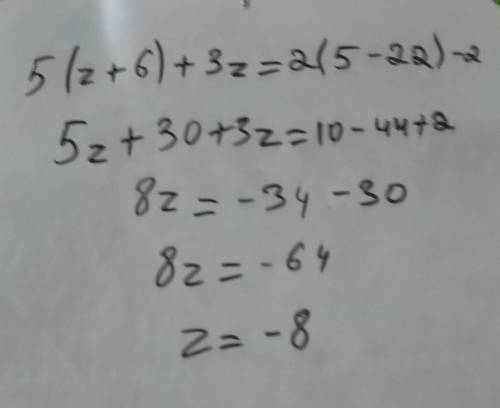 5(z+6)+3z=2(5-22)-2
5z+30+3z=10-44+2
8z=-34-30
8z=-64
z=-8